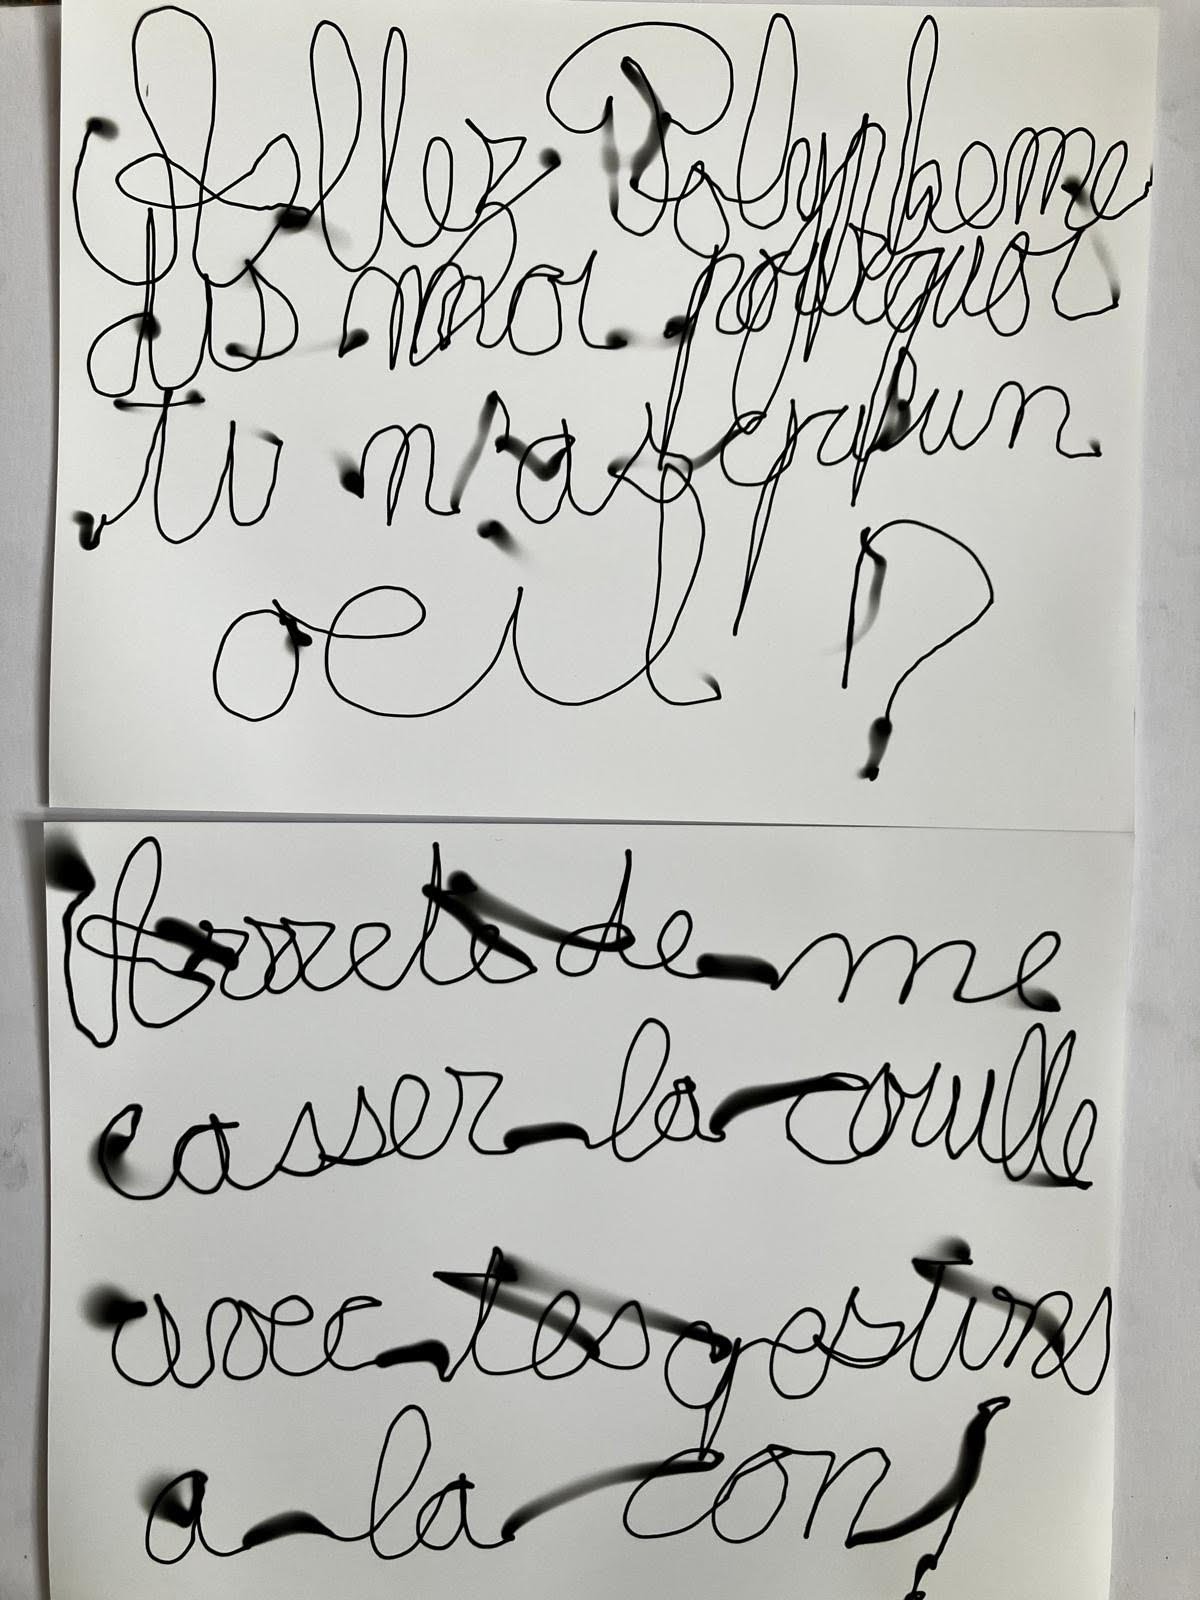 Allez Polypheme
dis moi pourquoi
tu n'as qu'un
oeil ?
Arrete de me
casser la couille
avec tes qestions
a la con !